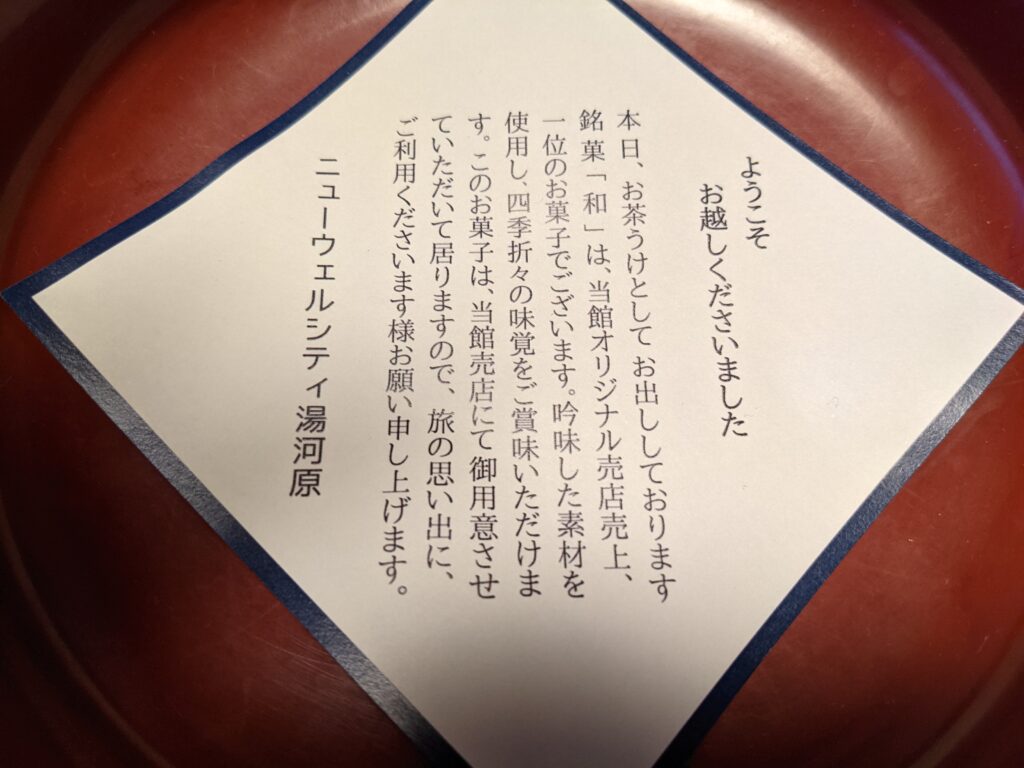 ようこそ
お越しくださいました
本日、お茶うけとして お出ししております
銘菓「和」は、当館オリジナル売店売上、
一位のお菓子でございます。吟味した素材を
使用し、四季折々の味覚をご賞味いただけま
す。このお菓子は、当館売店にて 御用意させ
ていただいて居りますので、旅の思い出に、
ご利用くださいます様お願い申し上げます。
ニューウェルシティ湯河原